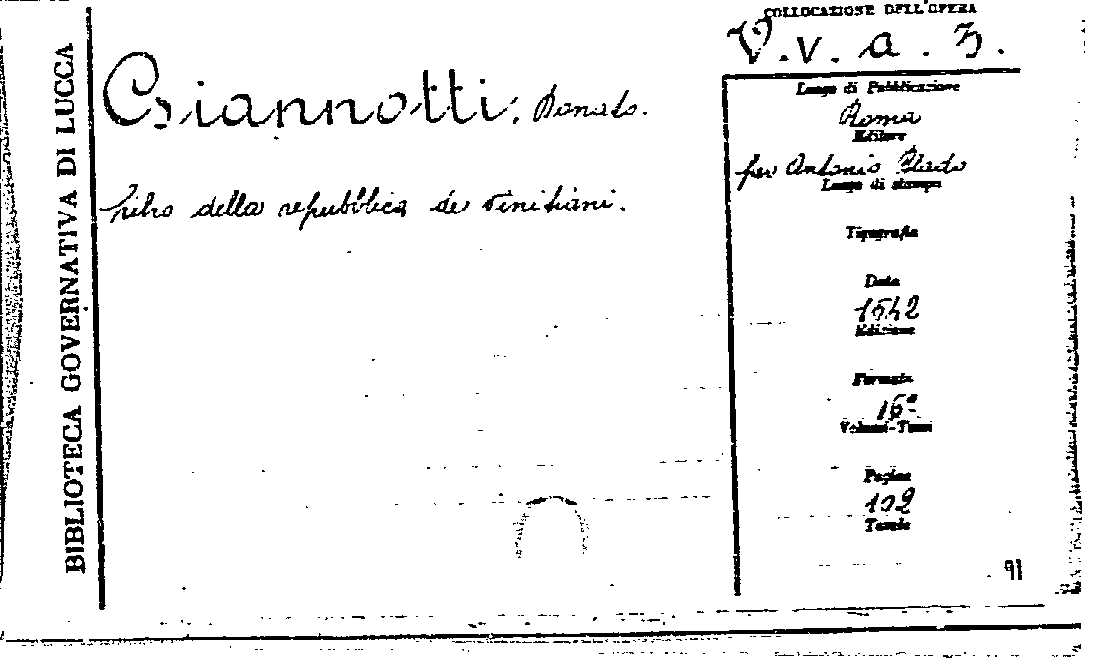 BIBLIOTECA GOVERNATIVA DI LUCCA
COLLOCAZIONE DELL'OPERA
V. v. a. 3.
Giannotti, Donato.
Libro della repubblica de Vinitiani.
Luogo di Pubblicazione
Roma
Editore
per Antonio Blado
Luogo di stampa
Tipografia
Data
1542
Edizione
Formato
16°
Volumi-Tomi
Pagine
102
Tavole
91